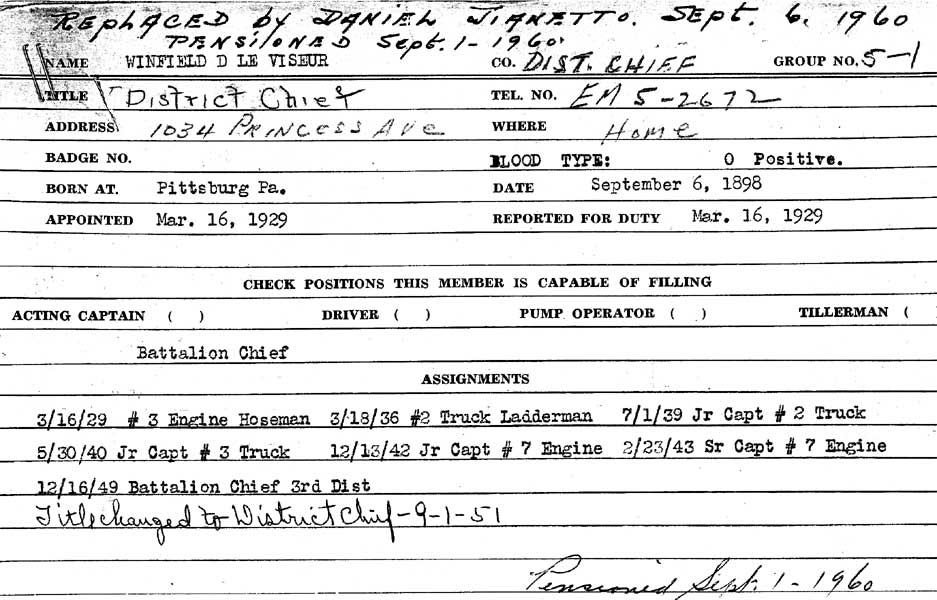 REPLACED by DANIEL JIANETTO. SEPT. 6, 1960
PENSIONED Sept. 1-1960.
NAME WINFIELD D LE VISEUR CO. DIST. CHIEF GROUP NO. 5-1
TITLE District Chief TEL. NO. EM 5-2672
ADDRESS 1034 PRINCESS AVE WHERE Home
BADGE NO. BLOOD TYPE: O Positive.
BORN AT. Pittsburg Pa. DATE September 6, 1898
APPOINTED Mar. 16, 1929 REPORTED FOR DUTY Mar. 16, 1929
CHECK POSITIONS THIS MEMBER IS CAPABLE OF FILLING
ACTING CAPTAIN ( ) DRIVER ( ) PUMP OPERATOR ( ) TILLERMAN (
Battalion Chief
ASSIGNMENTS
3/16/29 # 3 Engine Hoseman 3/18/36 #2 Truck Ladderman 7/1/39 Jr Capt # 2 Truck
5/30/40 Jr Capt # 3 Truck 12/13/42 Jr Capt # 7 Engine 2/23/43 Sr Capt # 7 Engine
12/16/49 Battalion Chief 3rd Dist
Title changed to District Chief-9-1-51
Pensioned Sept. 1-1960